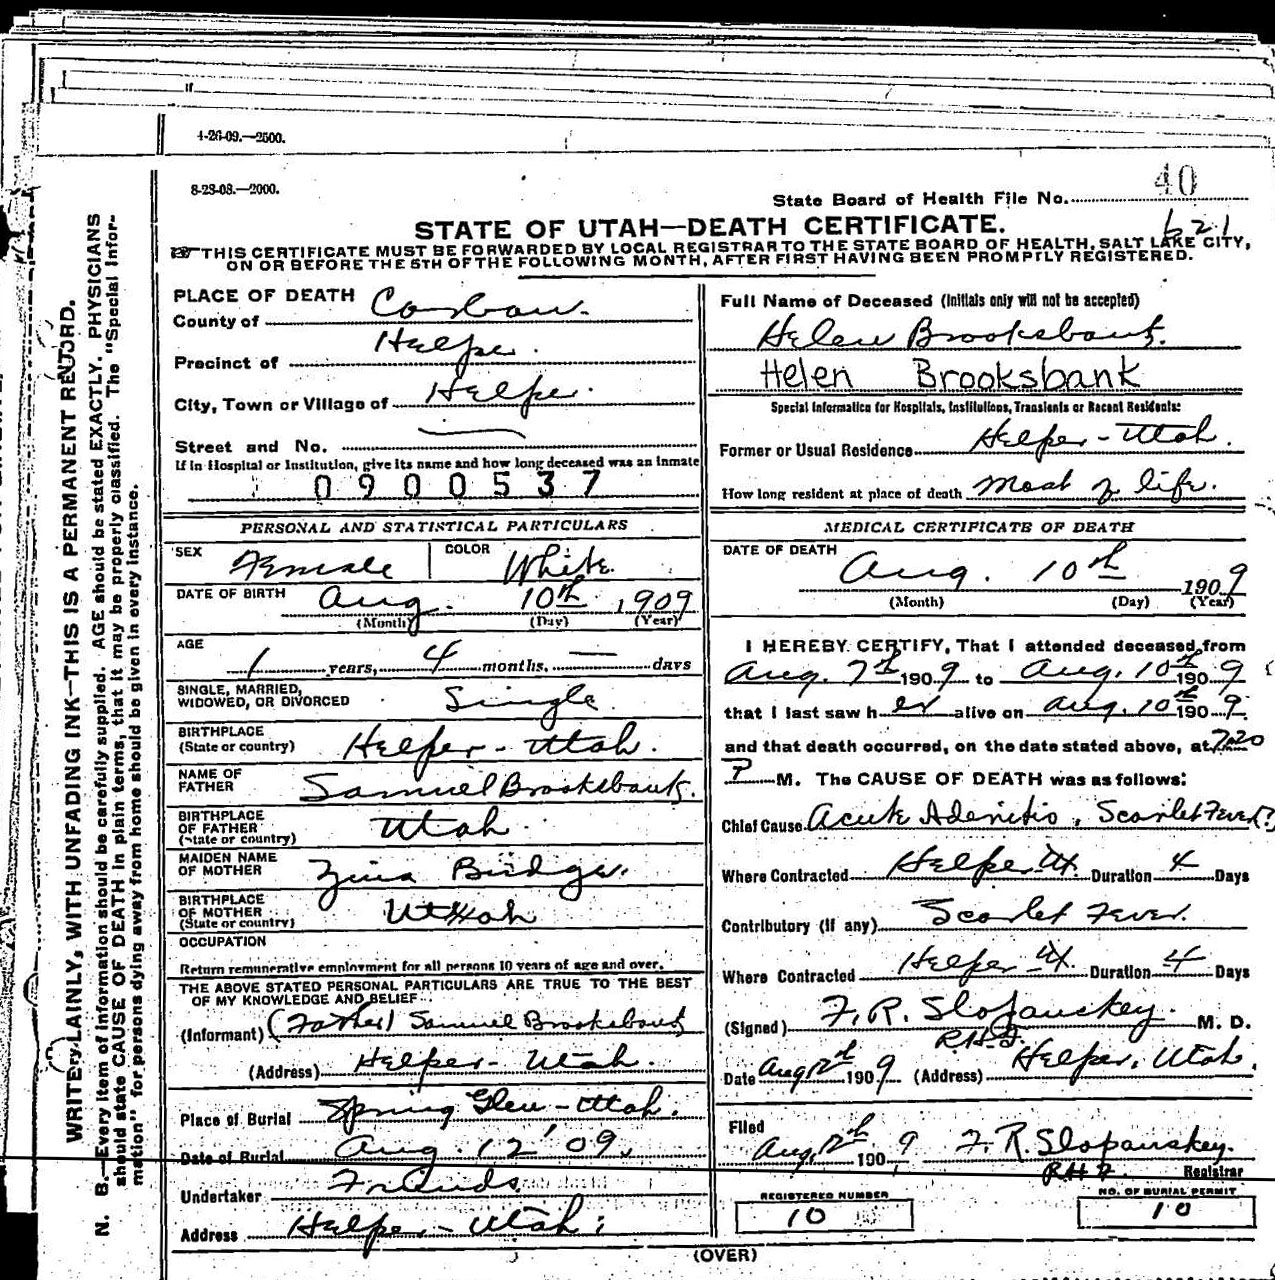 4-26-09.—2500.
8-28-08.—2000.
40
State Board of Health File No.
STATE OF UTAH—DEATH CERTIFICATE.
621
THIS CERTIFICATE MUST BE FORWARDED BY LOCAL REGISTRAR TO THE STATE BOARD OF HEALTH, SALT LAKE CITY,
ON OR BEFORE THE 5TH OF THE FOLLOWING MONTH, AFTER FIRST HAVING BEEN PROMPTLY REGISTERED.
WRITE PLAINLY, WITH UNFADING INK—THIS IS A PERMANENT RECORD.
N. B.—Every item of information should be carefully supplied. AGE should be stated EXACTLY. PHYSICIANS
should state CAUSE OF DEATH in plain terms, that it may be properly classified. The "Special Infor-
mation" for persons dying away from home should be given in every instance.
PLACE OF DEATH
County of Carbon
Precinct of Helper.
City, Town or Village of Helper.
Street and No. —
If in Hospital or Institution, give its name and how long deceased was an inmate
0900537
PERSONAL AND STATISTICAL PARTICULARS
SEX Female COLOR White.
DATE OF BIRTH Aug. 10th, 1909
(Month) (Day) (Year)
AGE
1 years, 4 months, — days
SINGLE, MARRIED,
WIDOWED, OR DIVORCED Single
BIRTHPLACE
(State or country) Helper - Utah.
NAME OF
FATHER Samuel Brooksbank.
BIRTHPLACE
OF FATHER
(State or country) Utah
MAIDEN NAME
OF MOTHER Zina
BIRTHPLACE
OF MOTHER
(State or country) Utah
OCCUPATION
Return remunerative employment for all persons 10 years of age and over.
THE ABOVE STATED PERSONAL PARTICULARS ARE TRUE TO THE BEST
OF MY KNOWLEDGE AND BELIEF
(Informant) (Father) Samuel Brooksbank
(Address) Helper - Utah.
Place of Burial Spring Glen - Utah.
Date of Burial Aug. 12 '09.
Undertaker Friends
Address Helper - Utah
Full Name of Deceased (Initials only will not be accepted)
Helen Brooksbank.
Helen Brooksbank
Special Information for Hospitals, Institutions, Transients or Recent Residents:
Former or Usual Residence Helper - Utah.
How long resident at place of death Most of life.
MEDICAL CERTIFICATE OF DEATH
DATE OF DEATH
Aug. 10th 1909
(Month) (Day) (Year)
I HEREBY CERTIFY, That I attended deceased from
Aug. 7th 1909 to Aug. 10th 1909
that I last saw her alive on Aug. 10th 1909.
and that death occurred, on the date stated above, at 7:20
P M. The CAUSE OF DEATH was as follows:
Chief Cause Acute Adenitis, Scarlet Fever?
Where Contracted Helper Ut. Duration 4 Days
Contributory (if any) Scarlet Fever.
Where Contracted Helper - Ut. Duration 4 Days
(Signed) F. R. Slopanskey. M. D.
Date Aug 12th 1909 (Address) Helper, Utah.
Filed
Aug 12th 1909 F. R. Slopanskey.
Registrar
REGISTERED NUMBER
10
NO. OF BURIAL PERMIT
10
(OVER)